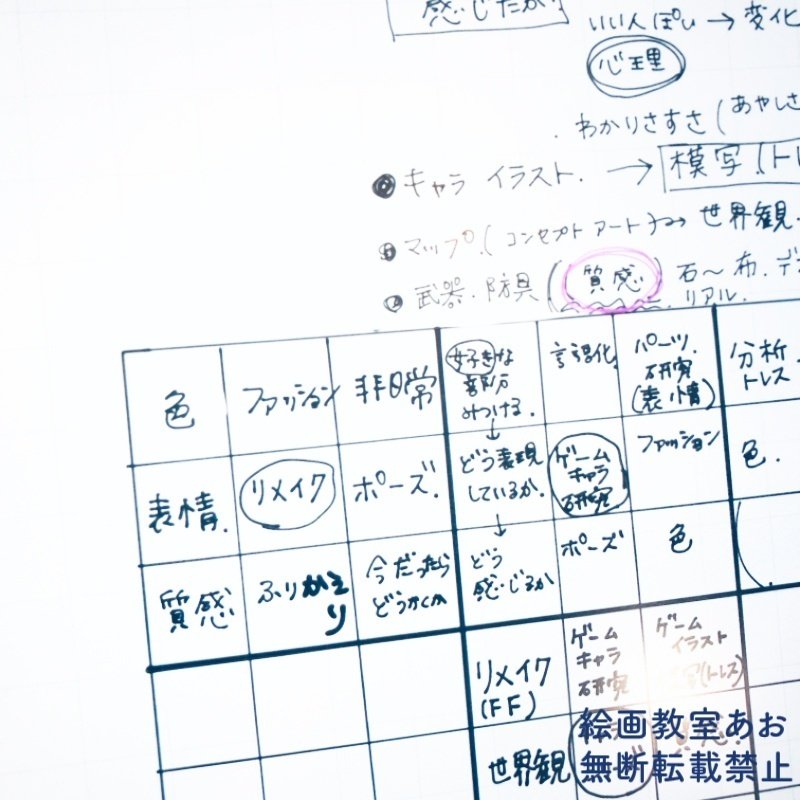 感じたか
いいん人ぽい → 変化
心理
・わかりさすさ(あやしさ
◎キャラ イラスト. → 模写.(トレ
マップ.(コンセプトアート)→ 世界観.
武器.防具.(質感)石〜布.デ
リアル.
色
ファッション
非日常
好きな
部分
みつける.
↓
言語化.
パーツ.
研究
(表情)
分析.
トレス
表情.
リメイク
ポーズ.
どう表現
しているか.
↓
ゲーム
キャラ
研究
ファッション
色.
質感
ふりかえ
り
今だったら
どうかくか
どう
感じるか
ポーズ
色
リメイク
(FF)
ゲーム
キャラ
研究
ゲーム
イラスト
(トレス)
世界観
絵画教室あお
無断転載禁止